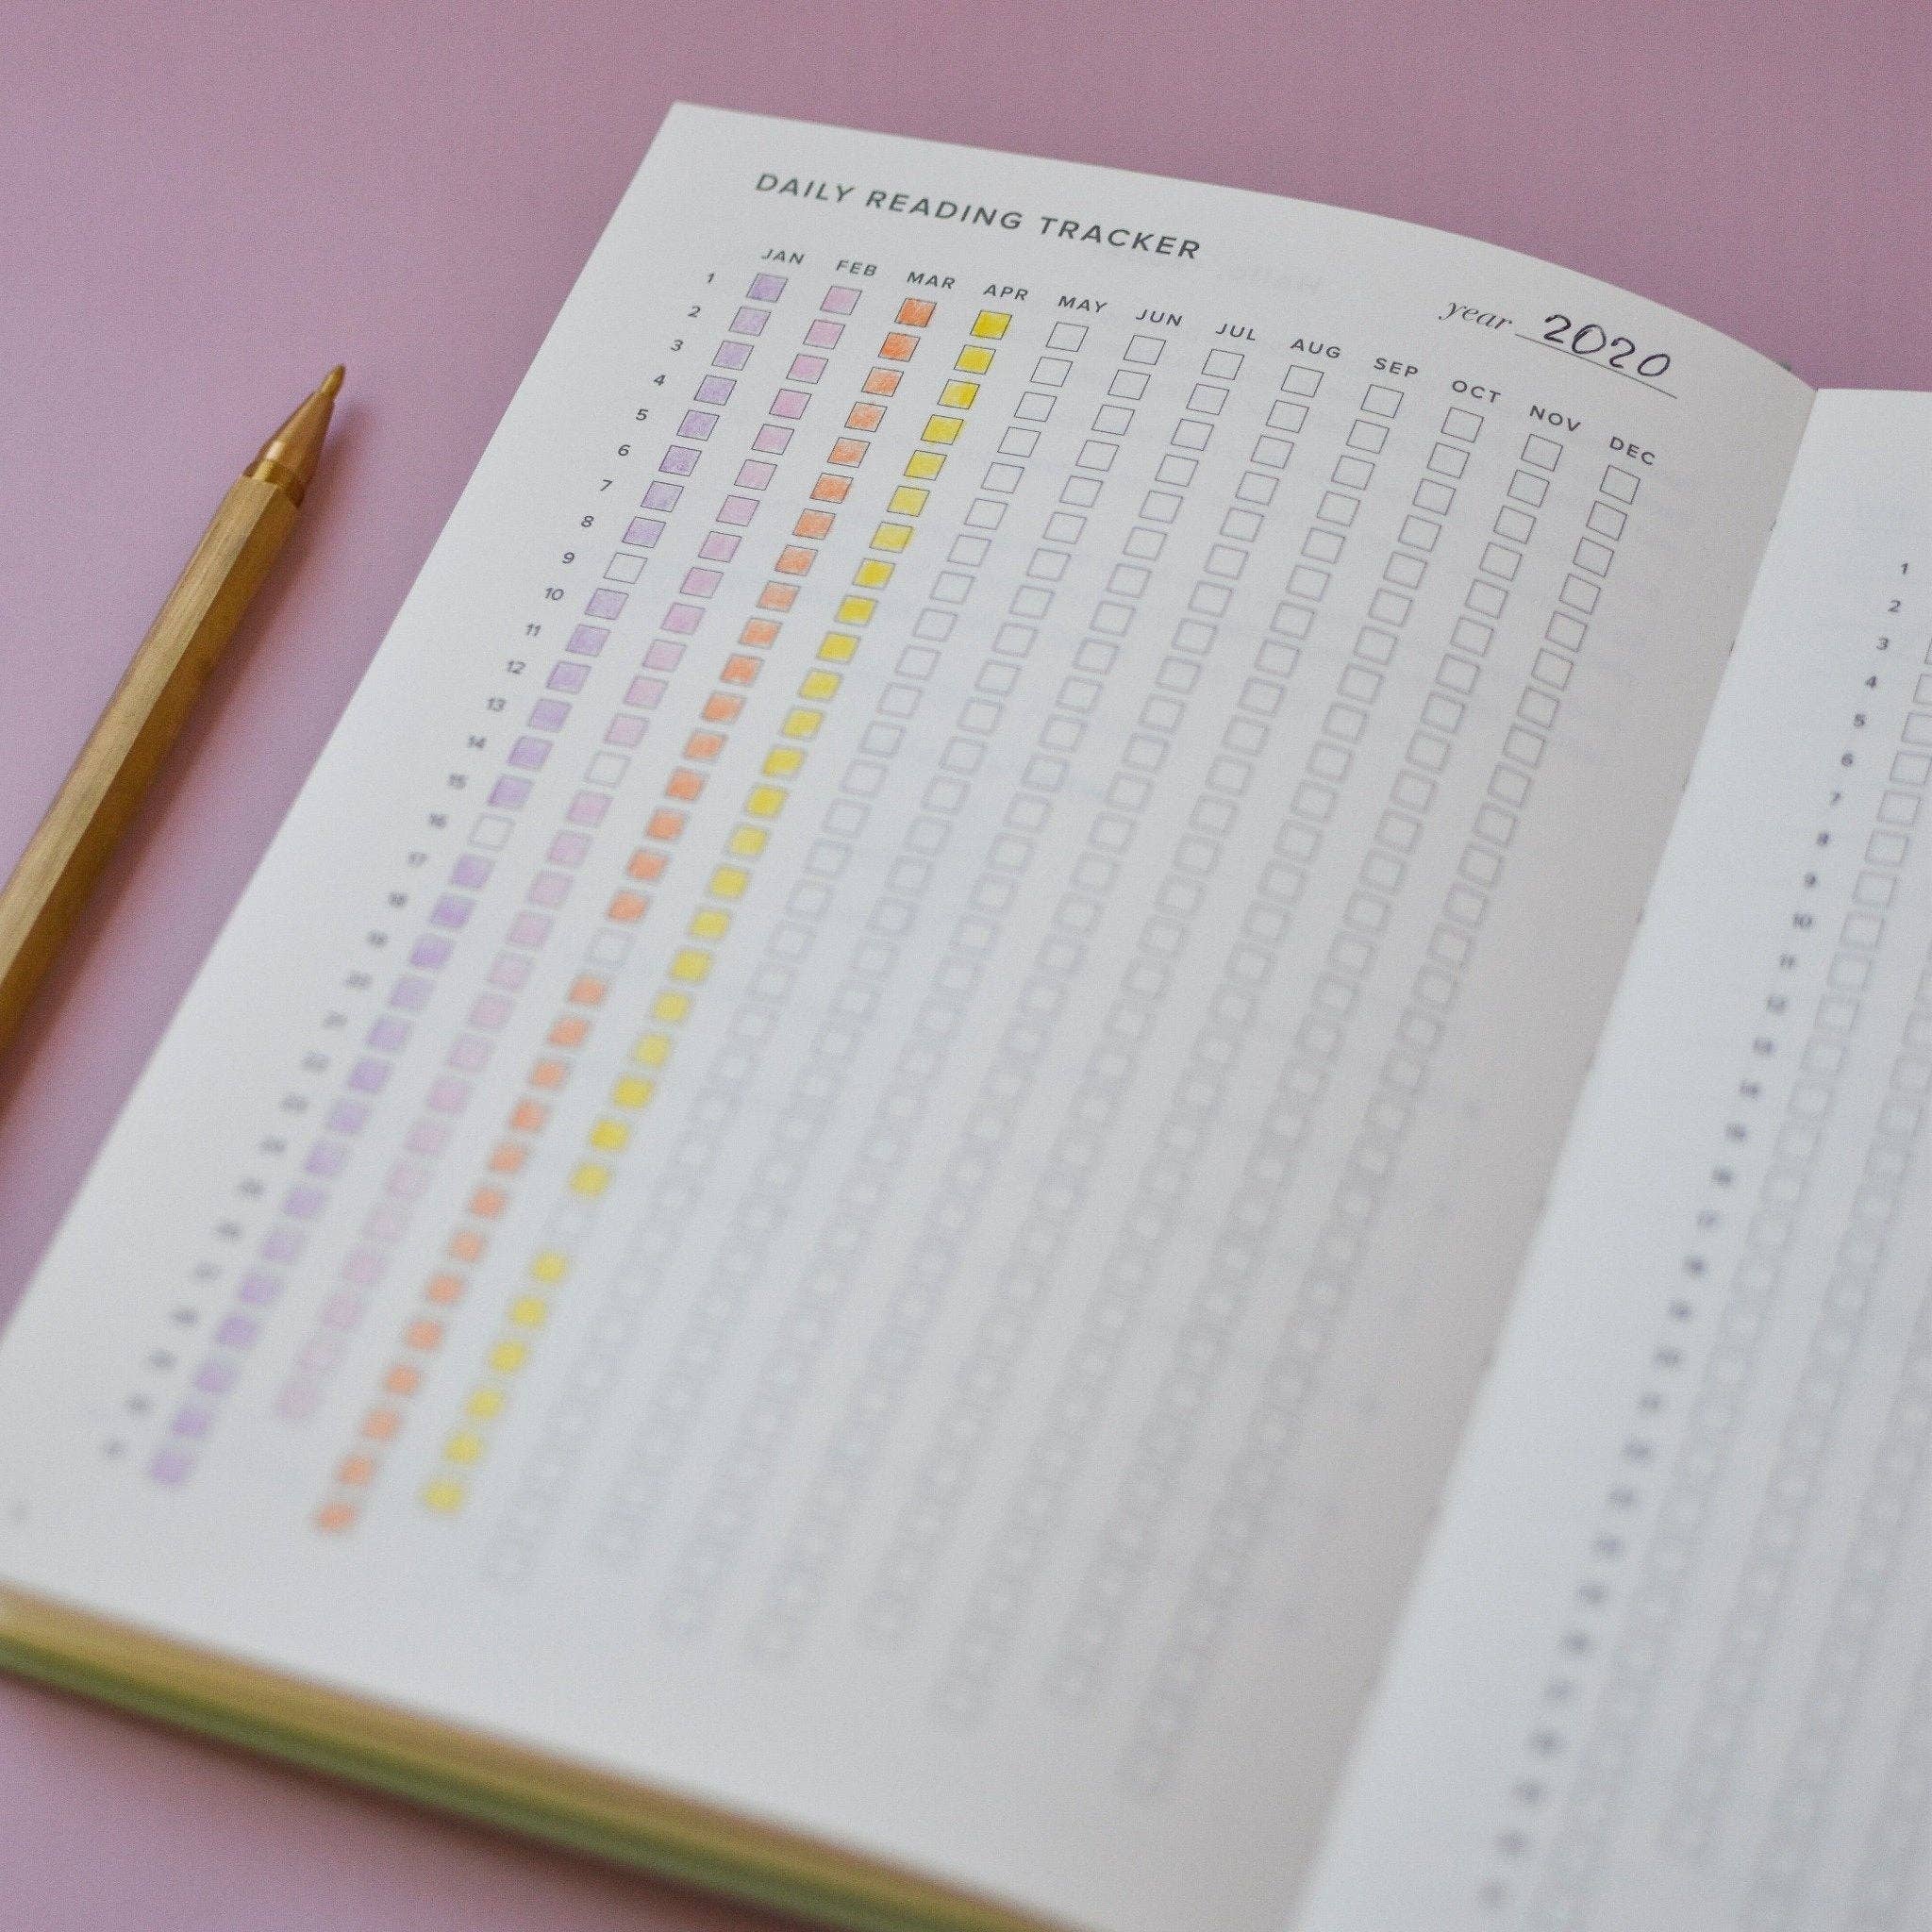 DAILY READING TRACKER
year 2020
JAN FEB MAR APR MAY JUN JUL AUG SEP OCT NOV DEC
1
2
3
4
5
6
7
8
9
10
11
12
13
14
15
16
17
18
1
2
3
4
5
6
7
8
9
10
11
12
13